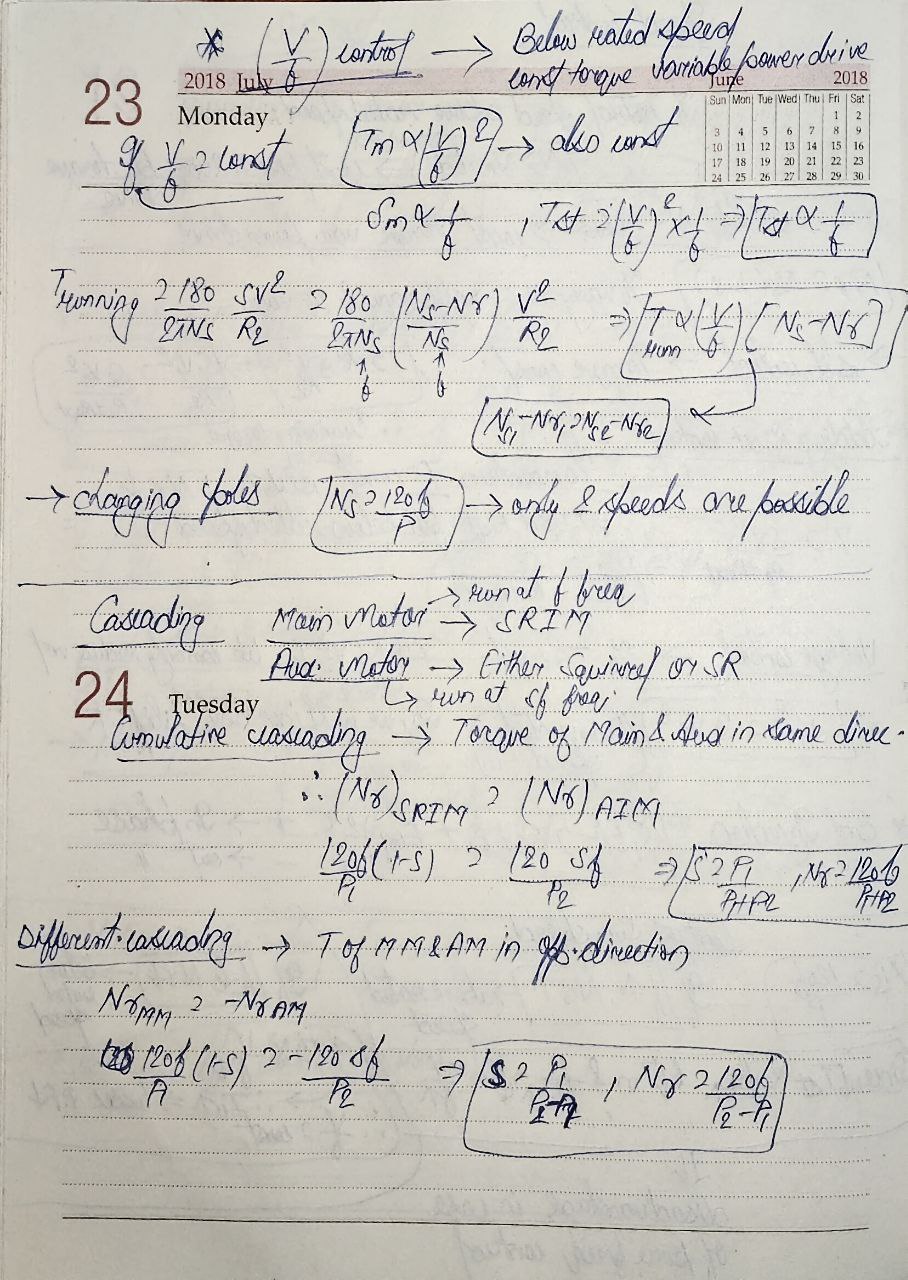 * (V/f) control → Below rated speed
const torque variable power drive
23 2018 July June 2018
Monday
Sun Mon Tue Wed Thu Fri Sat
1 2
3 4 5 6 7 8 9
10 11 12 13 14 15 16
17 18 19 20 21 22 23
24 25 26 27 28 29 30
If V/f = const Tm ∝ (V/f)² → also const
Sm ∝ 1/f , Tst = (V/f)² × 1/f ⇒ Tst ∝ 1/f
Trunning = 180/2πNs SV²/R2 = 180/2πNs (Ns-Nr/Ns) V²/R2 ⇒ Trunn ∝ (V/f) [Ns-Nr]
↑ f ↑ f
Ns1-Nr1 = Ns2-Nr2
→ changing poles Ns = 120f/P → only 2 speeds are possible
Cascading Main Motor → run at f freq
→ SRIM
Aux. Motor → Either Squirrel or SR
24 Tuesday → run at sf freq.
Cumulative cascading → Torque of Main & Aux in same direc.
∴ (Nr)SRIM = (Nr)AIM
120f/P1 (1-S) = 120 Sf/P2 ⇒ S = P1/P1+P2 , Nr = 120f/P1+P2
Different. cascadng → T of MM & AM in opp. direction
NrMM = -NrAM
120f/P1 (1-S) = -120 sf/P2 ⇒ S = P1/P2-P1 , Nr = 120f/P2-P1